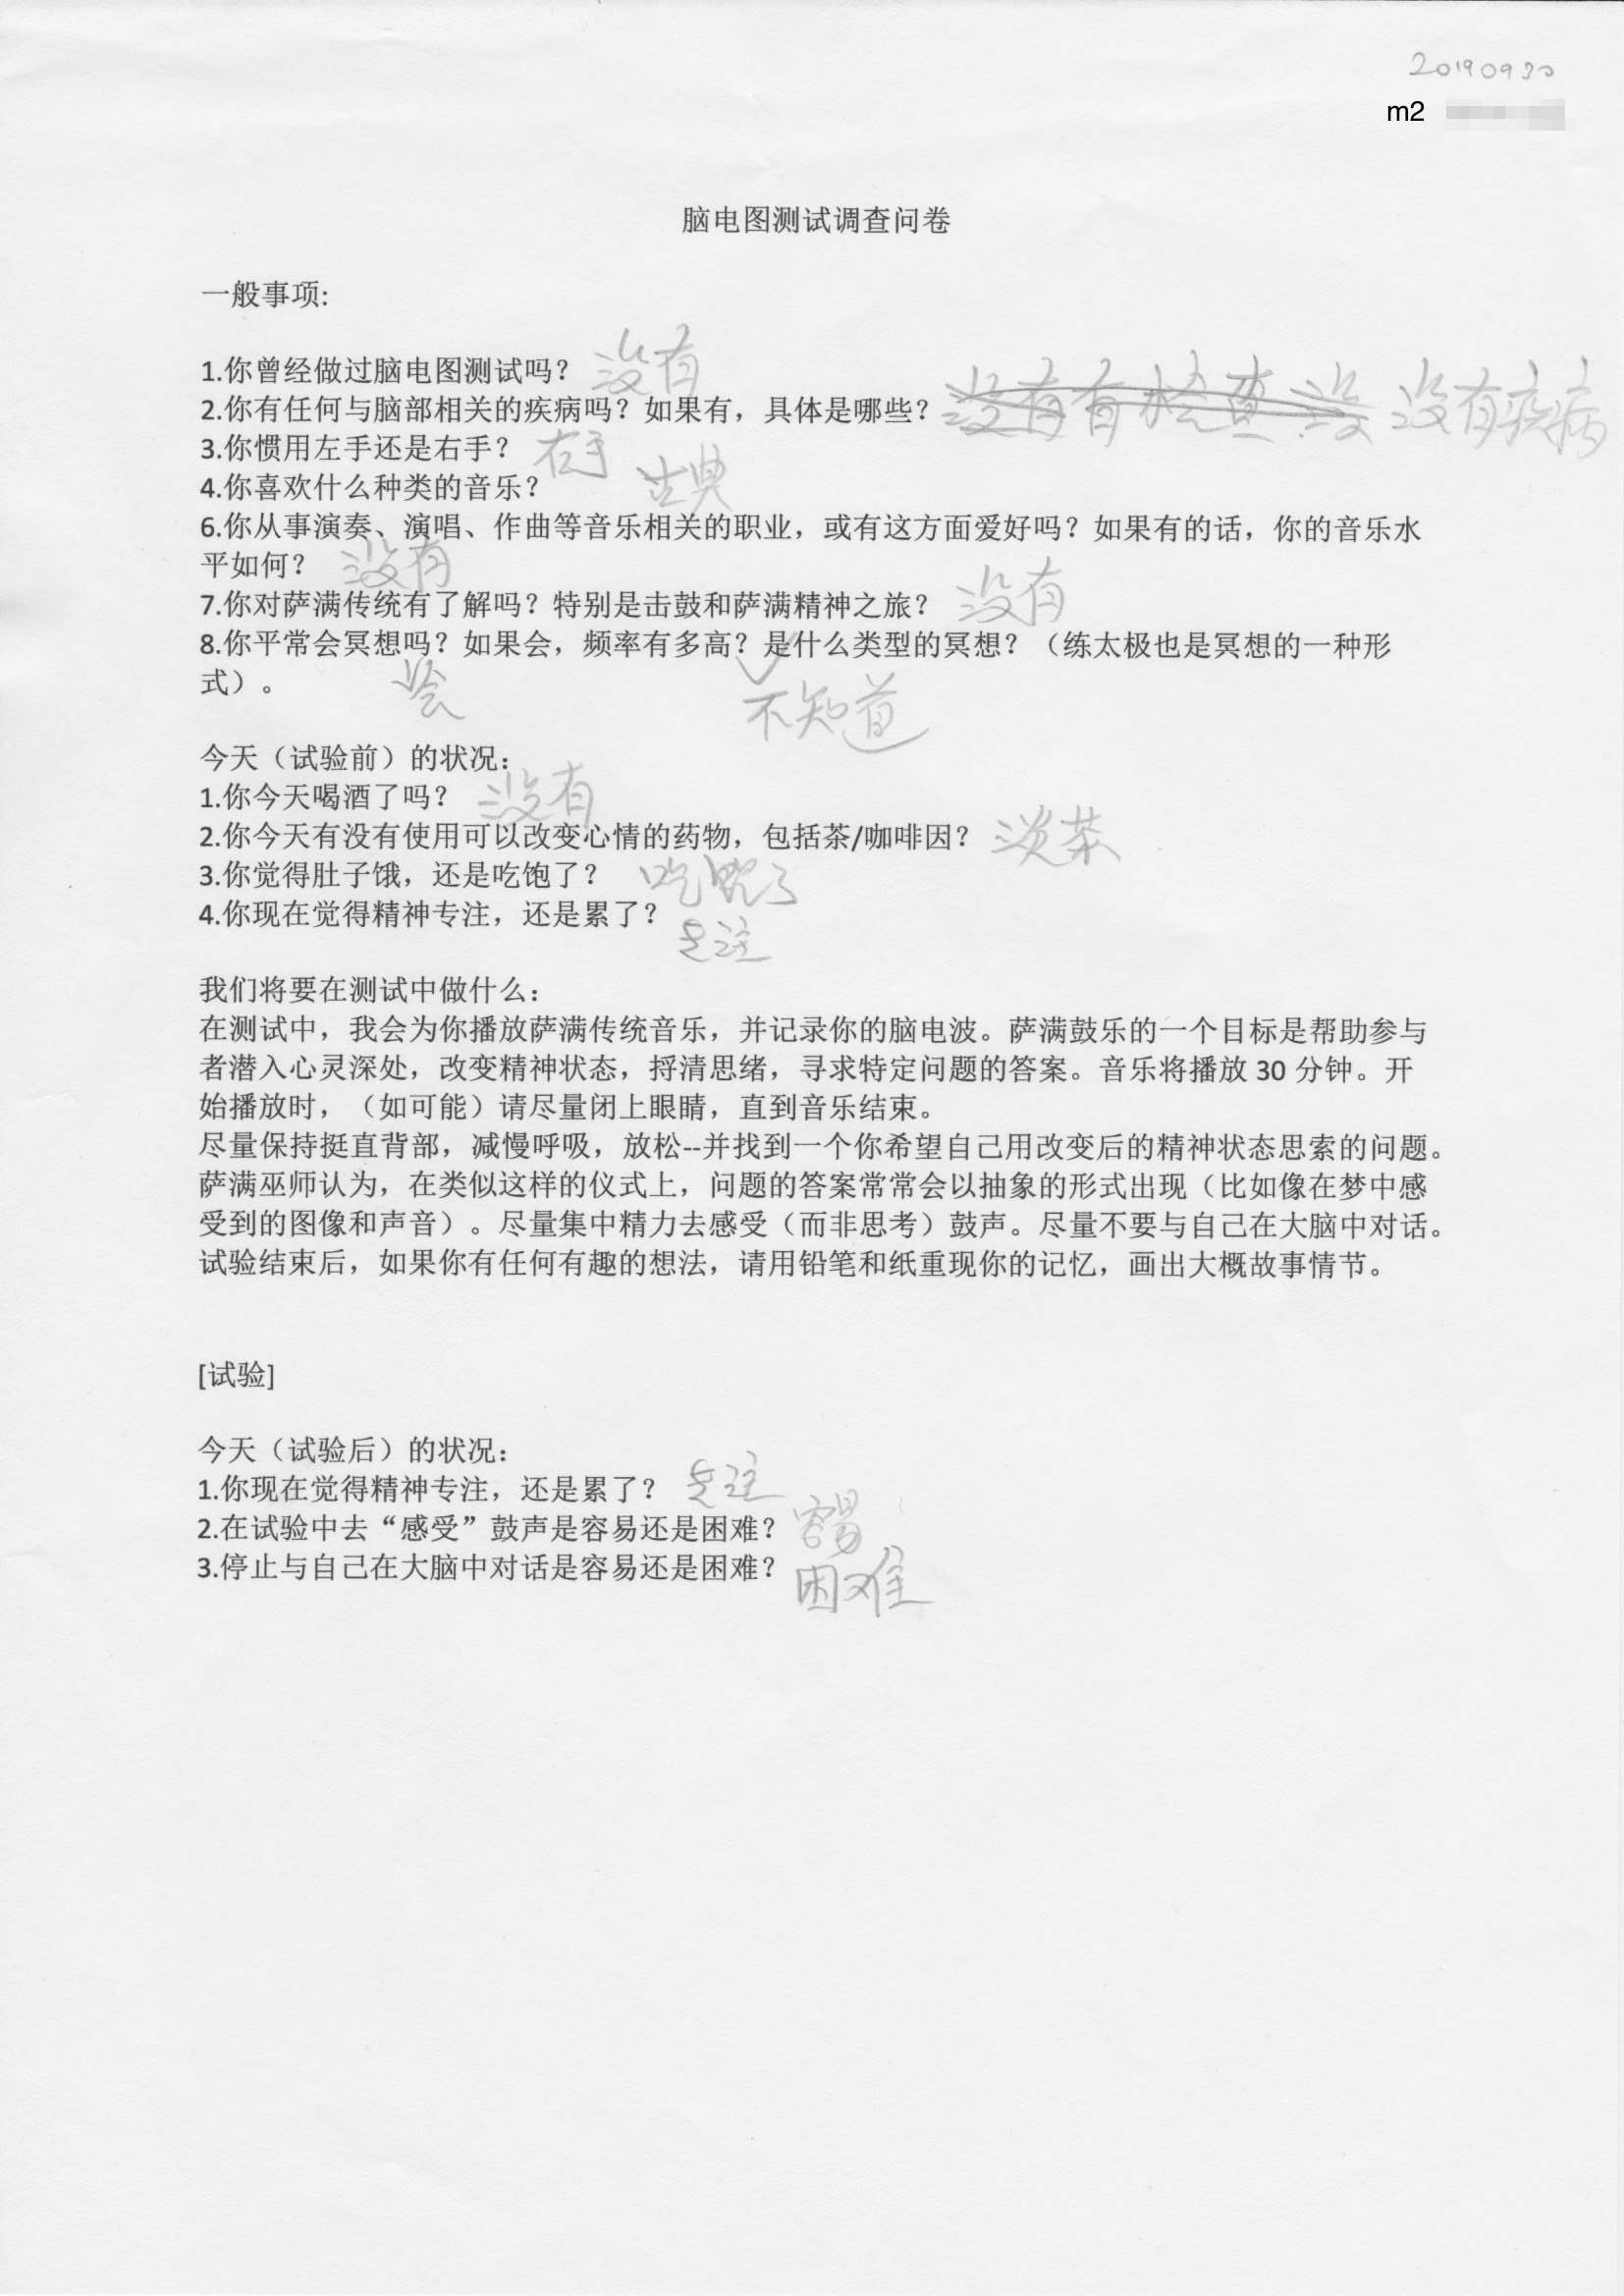 20190930
m2
脑电图测试调查问卷
一般事项:
1.你曾经做过脑电图测试吗? 没有
2.你有任何与脑部相关的疾病吗? 如果有, 具体是哪些? 没有有检查 没 没有疾病
3.你惯用左手还是右手? 右手
4.你喜欢什么种类的音乐? 古典
6.你从事演奏、演唱、作曲等音乐相关的职业, 或有这方面爱好吗? 如果有的话, 你的音乐水
平如何? 没有
7.你对萨满传统有了解吗? 特别是击鼓和萨满精神之旅? 没有
8.你平常会冥想吗? 如果会, 频率有多高? 是什么类型的冥想? (练太极也是冥想的一种形
式)。 会 不知道
今天(试验前)的状况:
1.你今天喝酒了吗? 没有
2.你今天有没有使用可以改变心情的药物, 包括茶/咖啡因? 淡茶
3.你觉得肚子饿, 还是吃饱了? 吃饱了
4.你现在觉得精神专注, 还是累了? 专注
我们将要在测试中做什么:
在测试中, 我会为你播放萨满传统音乐, 并记录你的脑电波。萨满鼓乐的一个目标是帮助参与
者潜入心灵深处, 改变精神状态, 捋清思绪, 寻求特定问题的答案。音乐将播放 30 分钟。开
始播放时, (如可能)请尽量闭上眼睛, 直到音乐结束。
尽量保持挺直背部, 减慢呼吸, 放松--并找到一个你希望自己用改变后的精神状态思索的问题。
萨满巫师认为, 在类似这样的仪式上, 问题的答案常常会以抽象的形式出现(比如像在梦中感
受到的图像和声音)。尽量集中精力去感受(而非思考)鼓声。尽量不要与自己在大脑中对话。
试验结束后, 如果你有任何有趣的想法, 请用铅笔和纸重现你的记忆, 画出大概故事情节。
[试验]
今天(试验后)的状况:
1.你现在觉得精神专注, 还是累了? 专注
2.在试验中去“感受”鼓声是容易还是困难? 容易
3.停止与自己在大脑中对话是容易还是困难? 困难